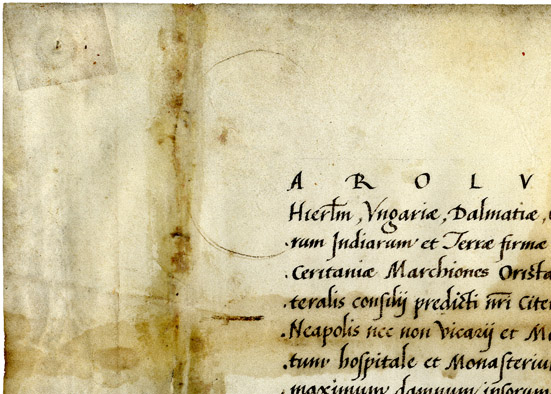 A R O L V
Hierłm, Vngariæ, Dalmatiæ,
rum Indiarum et Terræ firmæ
Ceritaniæ Marchiones Orista
teralis consilij predicti nr̄i Citer
Neapolis nec non Vicarij et Ma
tum hospitale et Monasteriu
maximum damnum ipsorum